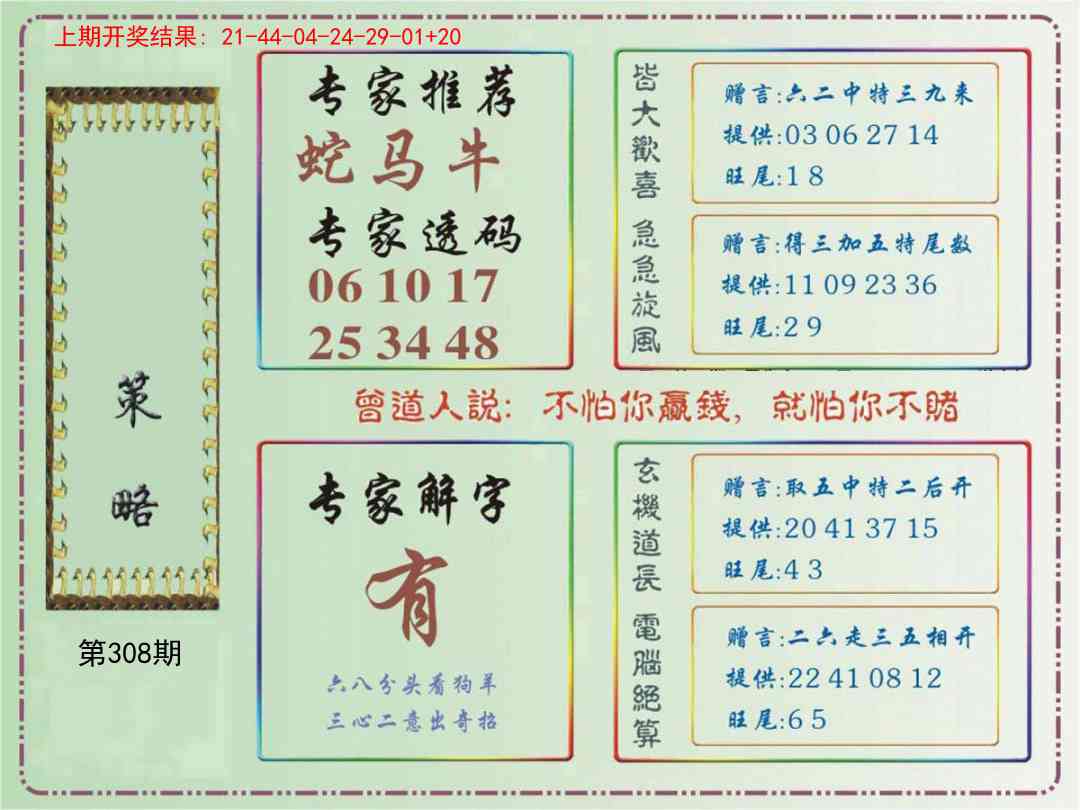 上期开奖结果: 21-44-04-24-29-01+20
策略
第308期
专家推荐
蛇马牛
专家透码
06 10 17
25 34 48
皆大歡喜
赠言:六二中特三九来
提供:03 06 27 14
旺尾:1 8
急急旋風
赠言:得三加五特尾数
提供:11 09 23 36
旺尾:2 9
曾道人説: 不怕你贏錢, 就怕你不賭
专家解字
有
六八分头看狗羊
三心二意出奇招
玄機道長
赠言:取五中特二后开
提供:20 41 37 15
旺尾:4 3
電腦絕算
赠言:二六走三五相开
提供:22 41 08 12
旺尾:6 5